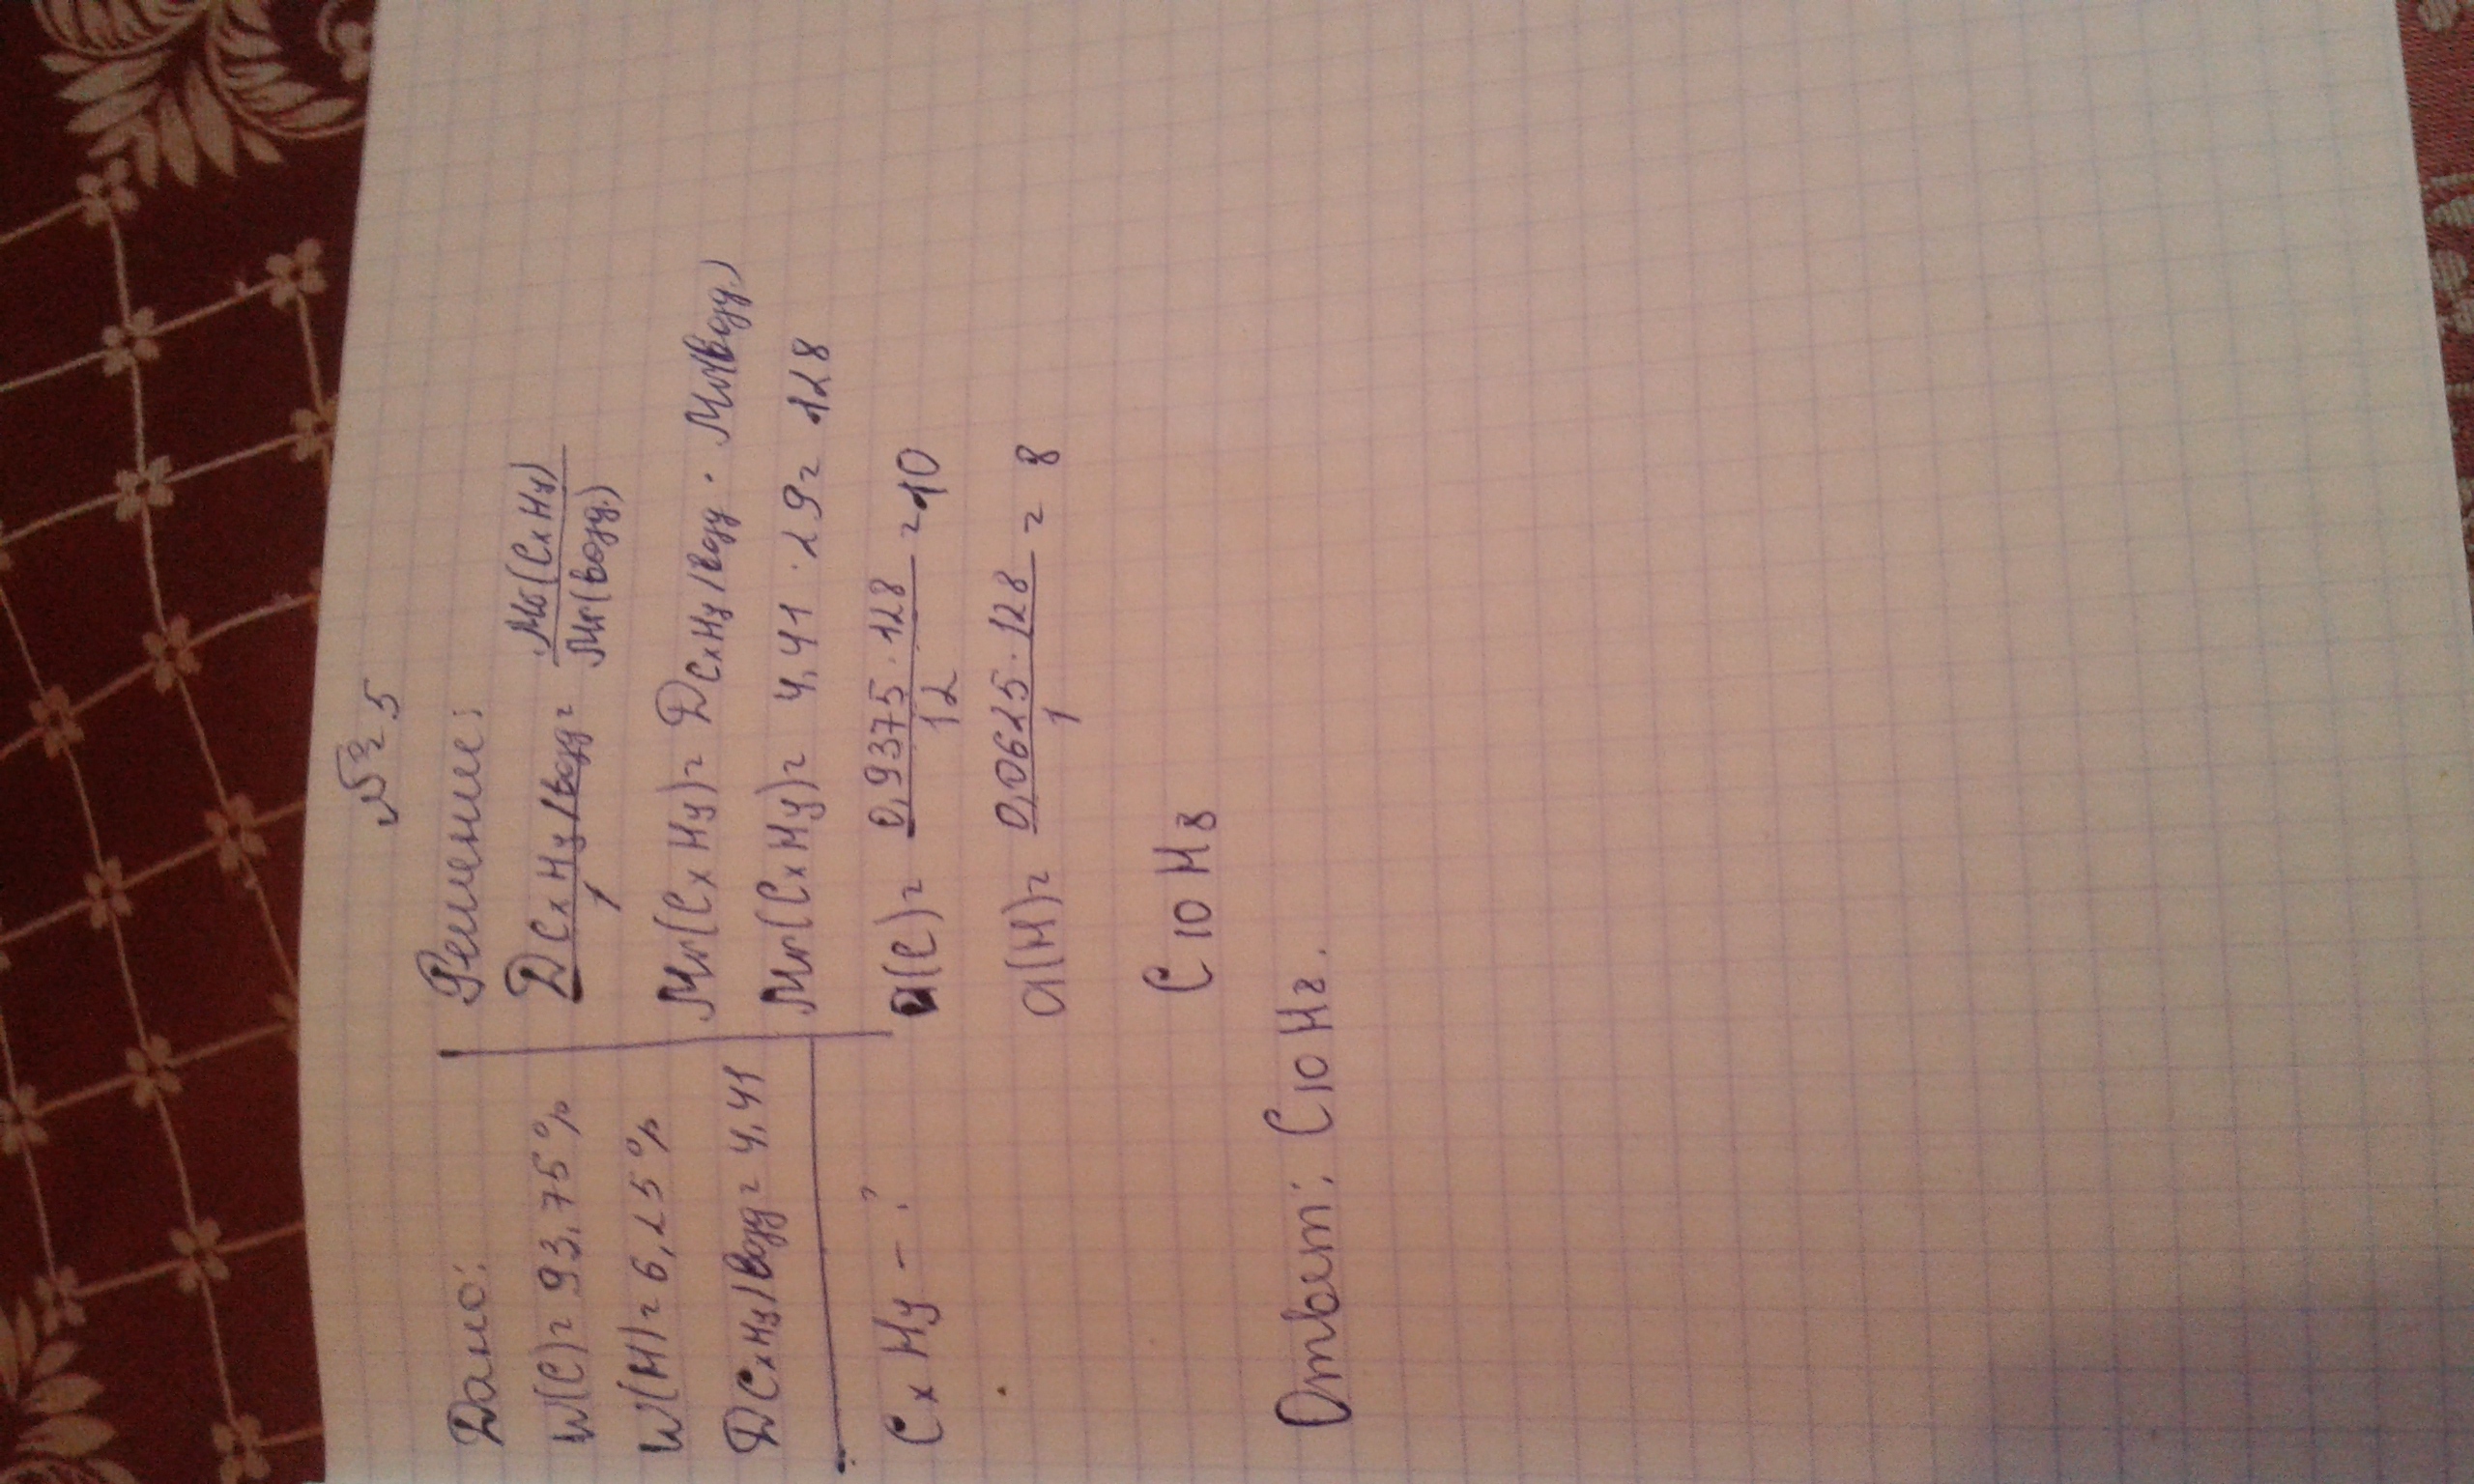 № 5
Дано:
W(C) = 93,75%
W(H) = 6,25%
Д CxHy/возд = 4,41
CxHy - ?
Решение:
Д CxHy/возд / 1 = Mr(CxHy) / Mr(возд.)
Mr(CxHy) = Д CxHy/возд · Mr(возд.)
Mr(CxHy) = 4,41 · 29 = 128
a(C) = 0,9375 · 128 / 12 = 10
a(H) = 0,0625 · 128 / 1 = 8
C10H8
Ответ: C10H8.